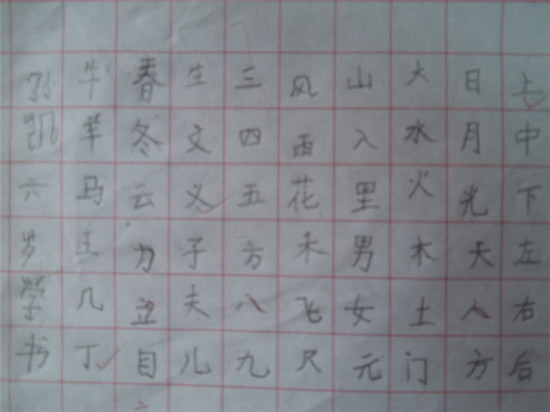 上中下左右后
日月光天人方
大水火木土门
山入里男女元
风雨花禾飞尺
三四五方八九
生文义子夫儿
春冬云力立目
牛羊马王几丁
孙凯六岁学书